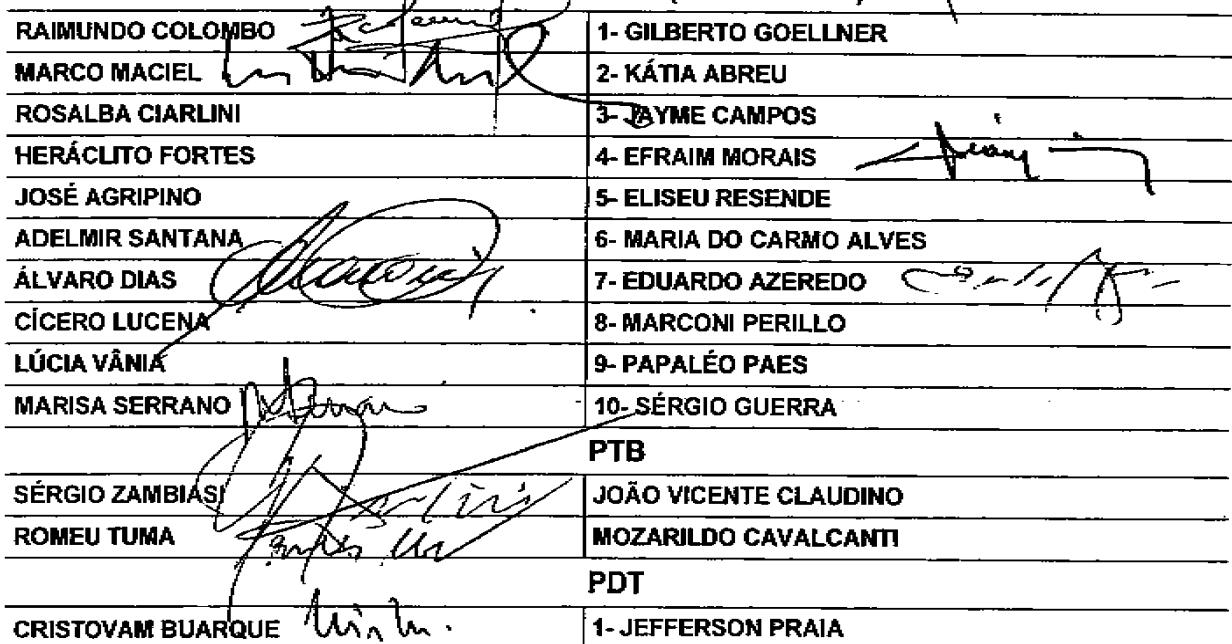 RAIMUNDO COLOMBO 1- GILBERTO GOELLNER
MARCO MACIEL 2- KÁTIA ABREU
ROSALBA CIARLINI 3- JAYME CAMPOS
HERÁCLITO FORTES 4- EFRAIM MORAIS
JOSÉ AGRIPINO 5- ELISEU RESENDE
ADELMIR SANTANA 6- MARIA DO CARMO ALVES
ÁLVARO DIAS 7- EDUARDO AZEREDO
CÍCERO LUCENA 8- MARCONI PERILLO
LÚCIA VÂNIA 9- PAPALÉO PAES
MARISA SERRANO 10- SÉRGIO GUERRA
PTB
SÉRGIO ZAMBIASI JOÃO VICENTE CLAUDINO
ROMEU TUMA MOZARILDO CAVALCANTI
PDT
CRISTOVAM BUARQUE 1- JEFFERSON PRAIA